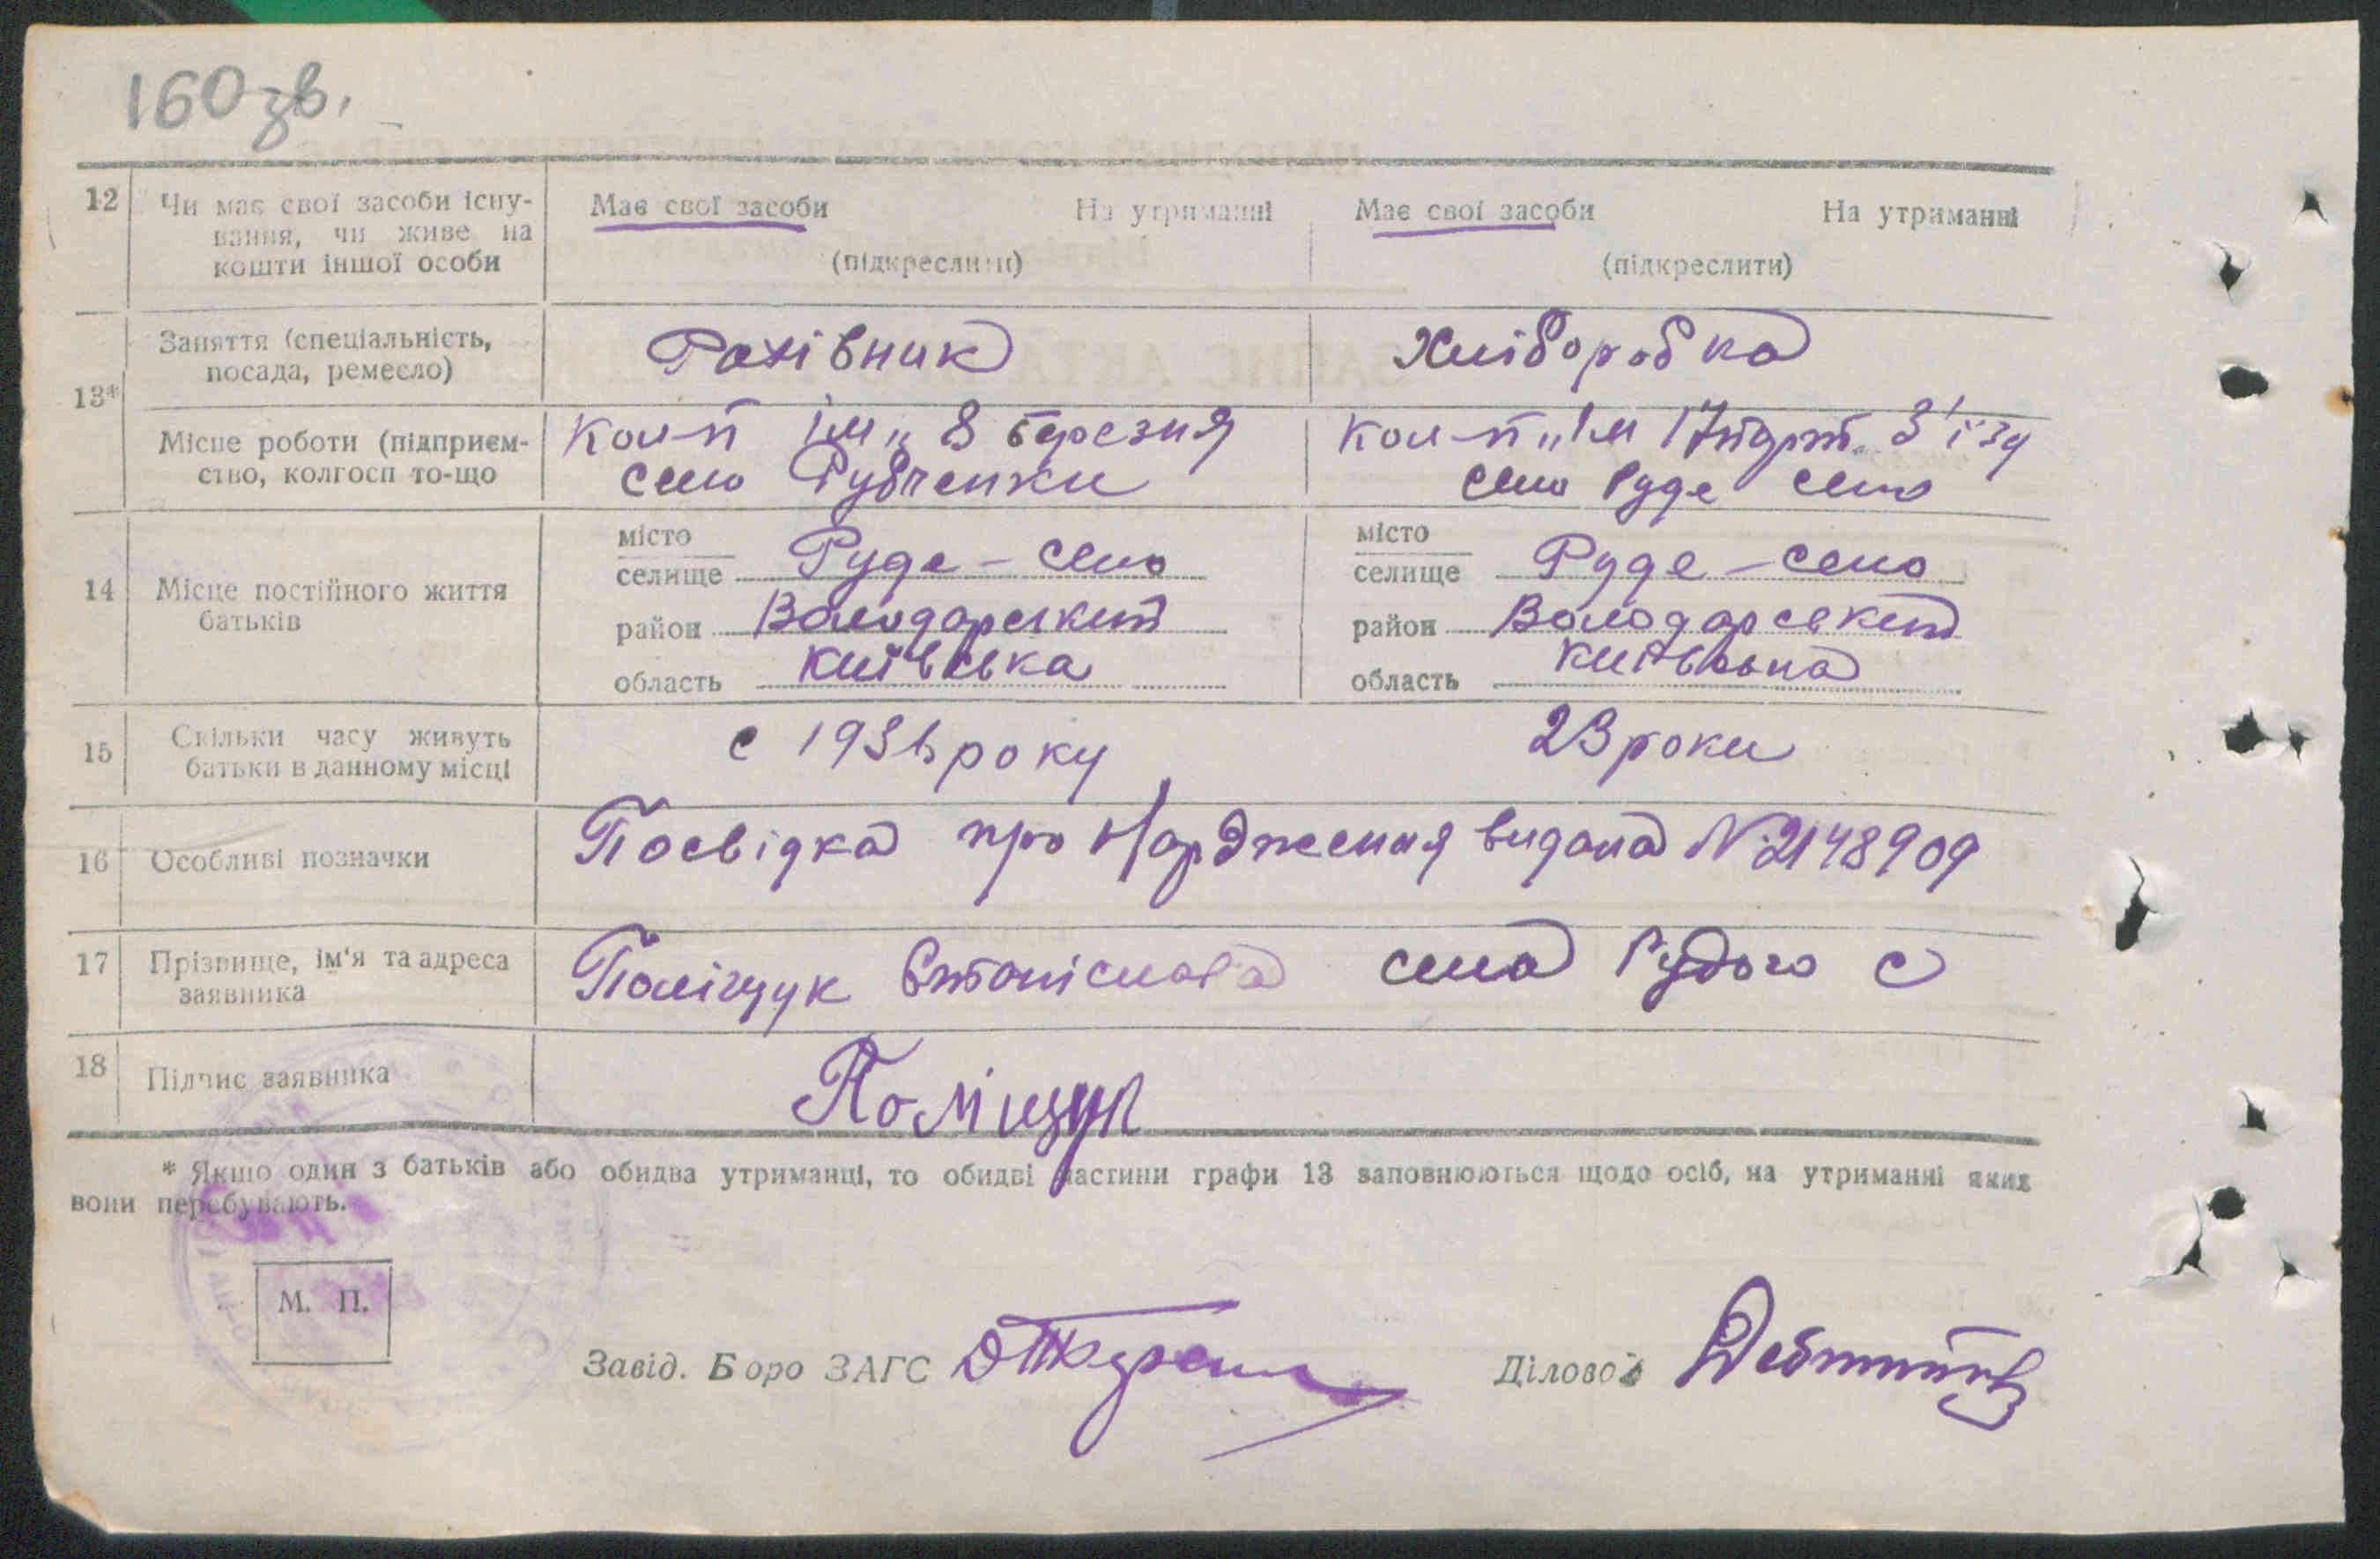 160 зв.
12 Чи має свої засоби існу-
вання, чи живе на
кошти іншої особи
Має свої засоби На утриманні
(підкреслити)
Має свої засоби На утриманні
(підкреслити)
13*
Заняття (спеціальність,
посада, ремесло)
Рахівник
Хліборобка
Місце роботи (підприєм-
ство, колгосп то-що
Кол-п ім „ 8 березня
село Рубченки
Кол-п „ім 17 парт. з'їзу
село Руде село
14 Місце постійного життя
батьків
місто
селище Руде - село
район Володарський
область Київська
місто
селище Руде - село
район Володарський
область Київська
15 Скільки часу живуть
батьки в данному місці
с 1936 року
23 роки
16 Особливі позначки
Посвідка про Нардження видана № 2148909
17 Прізвище, ім'я та адреса
заявника
Поліщук села Рудого с
18 Підпис заявника
Поліщук
* Якщо один з батьків або обидва утриманці, то обидві частини графи 13 заповнюються щодо осіб, на утриманні яких
вони перебувають.
М. П.
Завід. Боро ЗАГС
Діловод